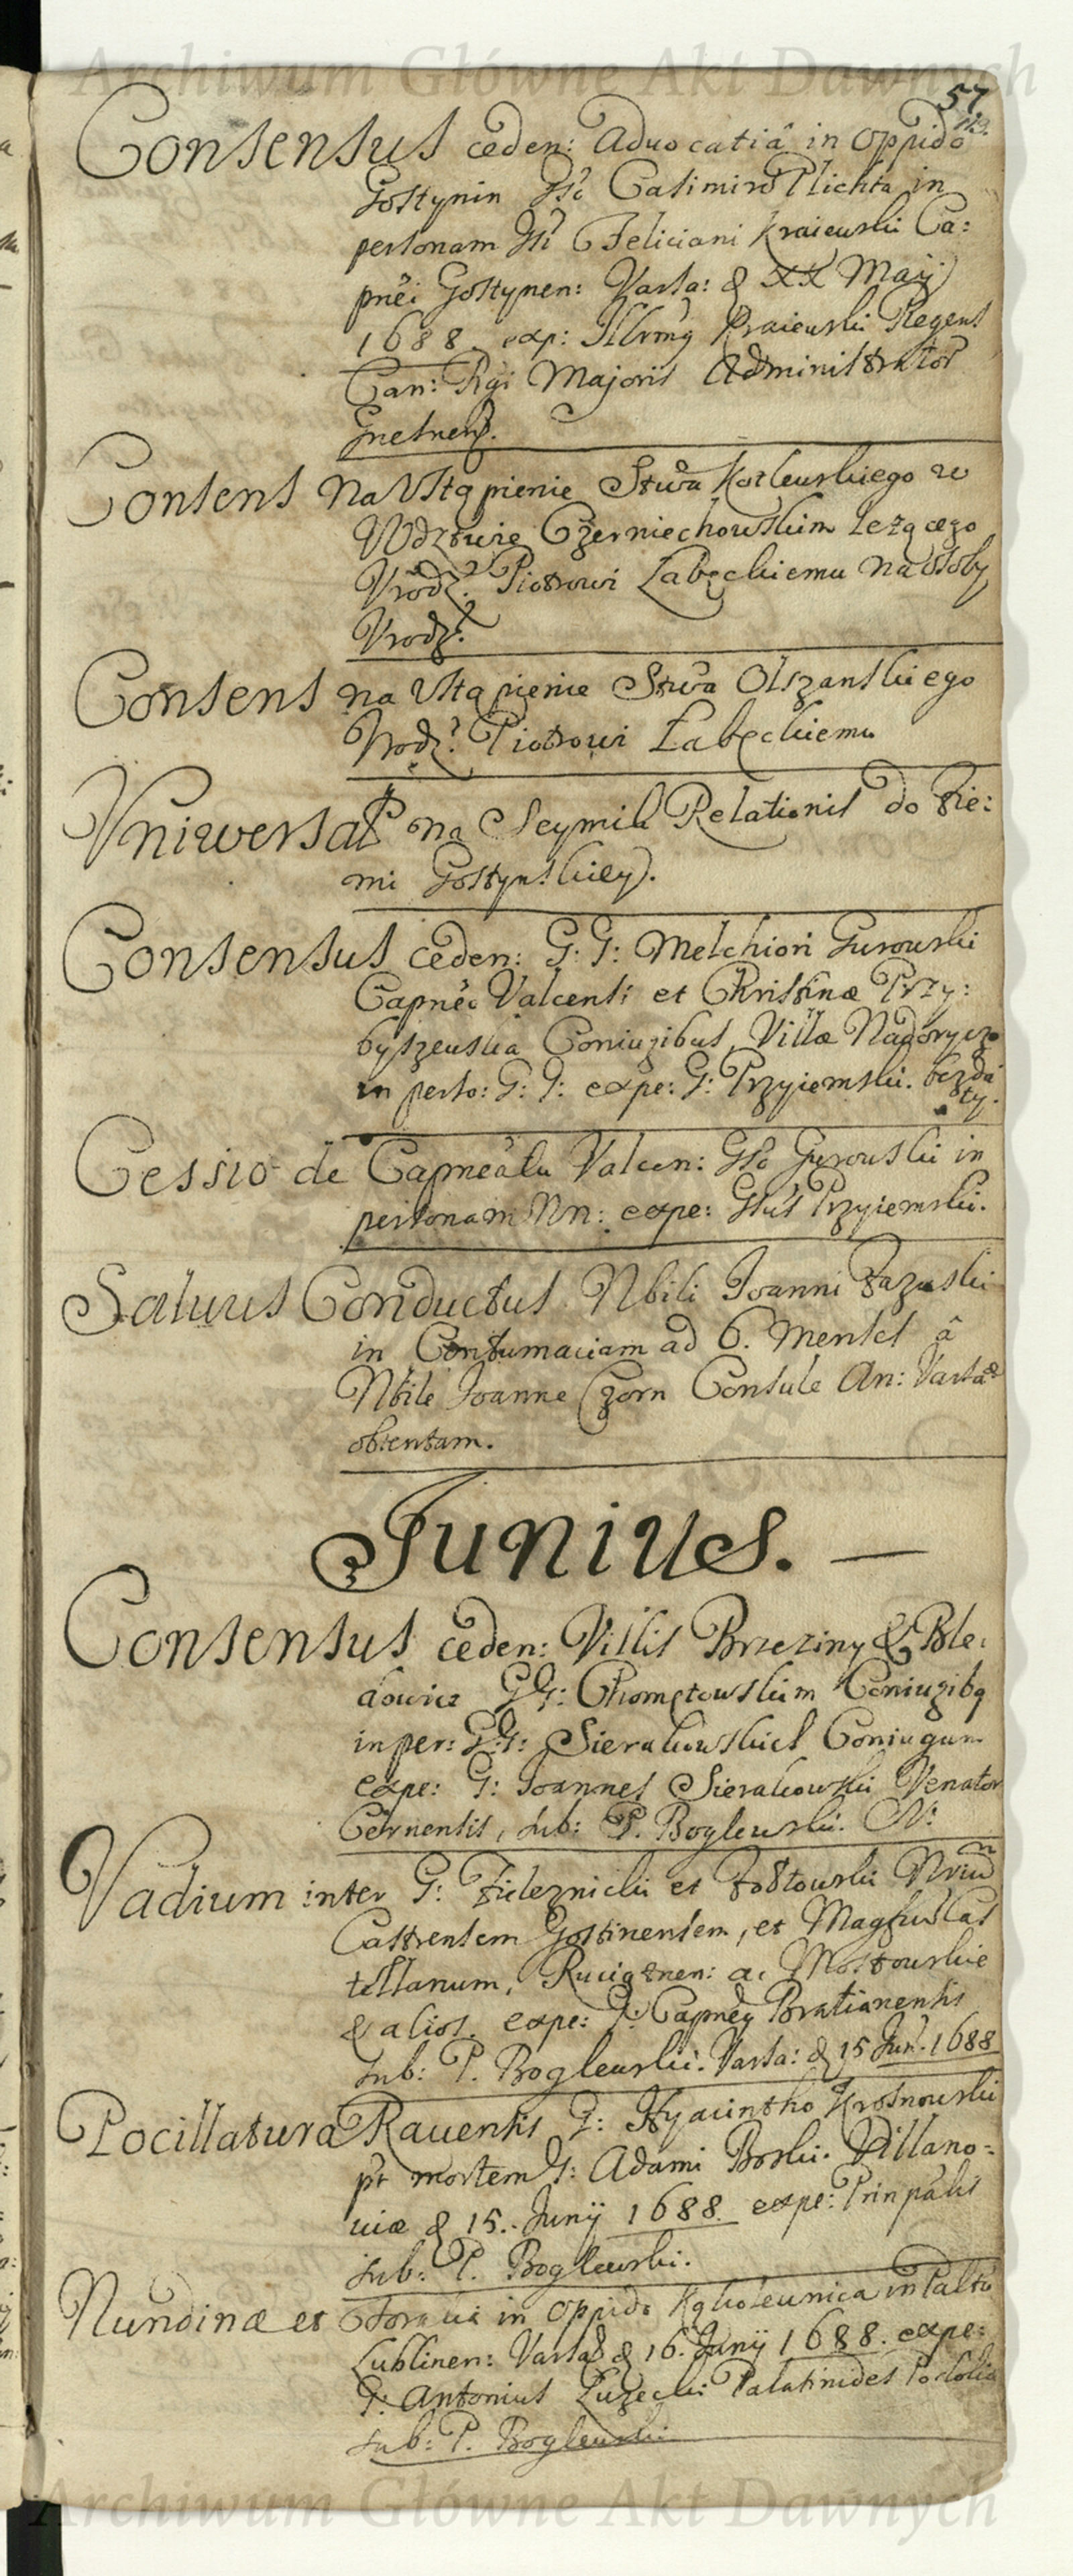 Archiwum Główne Akt Dawnych
57
Consensus ceden: Advocatiâ in oppido
Gostynin Gso Casimiro Plichta in
personam Gsi Feliciani Kraiewski Ca:
pnei Gostynen: Varsa: d XX Maij
1688. exp: Illrmg Kraiewski Regens
Can: Rgi Majoris Administrator
Gnesnens.
Consens na Ustąpienie Stwa Kotlewskiego w
Wdztwie Czerniechowskim Leżącego
Vrodz: Piotrowi Łabęckiemu na osoby
Vrodz:
Consens na Ustąpienie Stwa Olszanskiego
Vrodz: Piotrowi Łabęckiemu
Vniwersał na Seymik Relationis do Zie:
mi Gostynskiey.
Consensus ceden: G. G: Melchiori Gurowski
Capneo Valcensi et Christinæ Przy:
byszewska Coniugibus, Villæ Nadorycze
in perso: G: G: expe: G: Przyiemski. bez da
ty.
Cessio de Capneatu Valcen: Gso Gurowski in
personam Nn: expe: Gsus Przyiemski.
Salvus Conductus Nbili Joanni
in Contumaciam ad 6. Menses â
Nbile Joanne Czorn Consule An: Varsa
obtentam.
Junius. —
Consensus ceden: Villis Brzeziny & Ble:
dowicz GG: Chometowskim Coniugibq
in per: G:G: Sierakowskich Coniugum
expe: G: Joannes Sierakowski Venator
Cernensis, sub: P. Boglewski. N:
Vadium inter G: Zieleznicki et Zołtowski
Castrensem Gostinensem, et Magfus Cas
tellanum, ac Mostowskie
& alios. expe: G: Capneg Bratianensis
sub: P. Boglewski. Varsa: d 15 Jun: 1688
Pocillatura Ravensis G: Hyacintho Krosnowski
pt mortem G: Adami Boski. Villano=
viæ d 15. Junij 1688. expe: Prinpalis
sub: P. Boglewski.
Nundinæ et Foralia in oppido in Paltu
Lublinen: Varsa d 16. Junij 1688. expe:
G: Antonius Łuzecki Palatinides Podolia
sub: P. Boglewski
Archiwum Główne Akt Dawnych